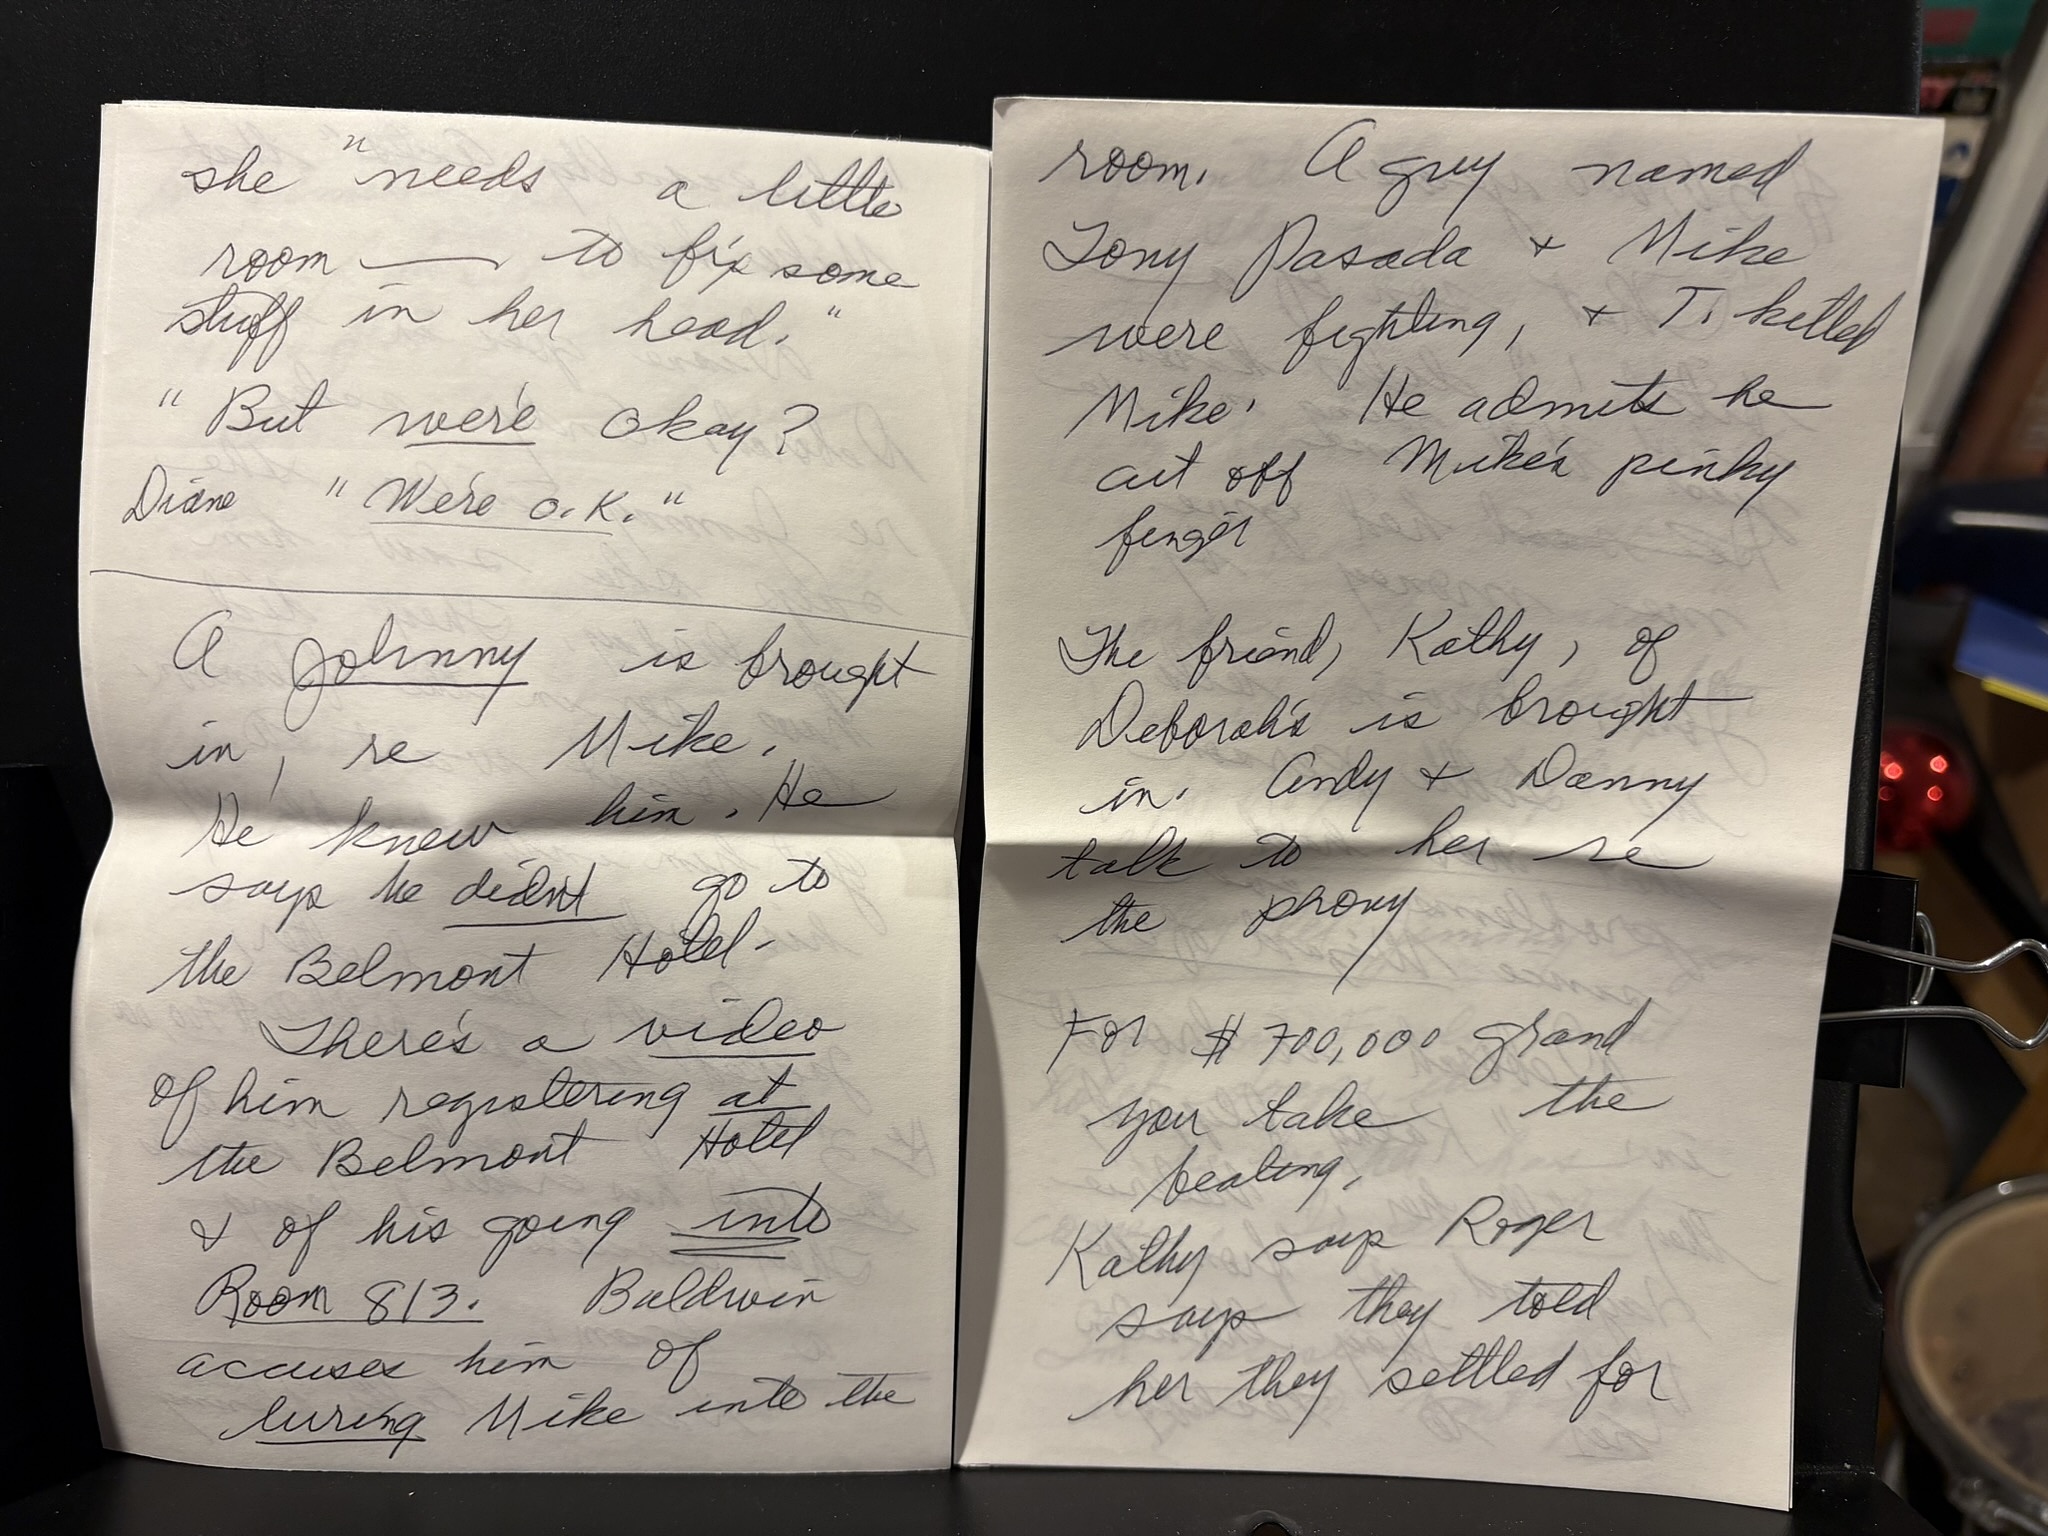 she "needs a little
room — to fix some
stuff in her head."
"But we're okay?
Diane "We're o.K."
A Johnny is brought
in, re Mike.
He knew him. He
says he didn't go to
the Belmont Hotel-
There's a video
of him registering at
the Belmont Hotel
& of his going into
Room 813. Baldwin
accuses him of
luring Mike into the
room. A guy named
Tony Pasada & Mike
were fighting, & T. killed
Mike. He admits he
cut off Mike's pinky
finger
The friend, Kathy, of
Deborah's is brought
in. Andy & Danny
talk to her re
the phony
For $700,000 grand
you take the
beating.
Kathy says Roger
says they told
her they settled for